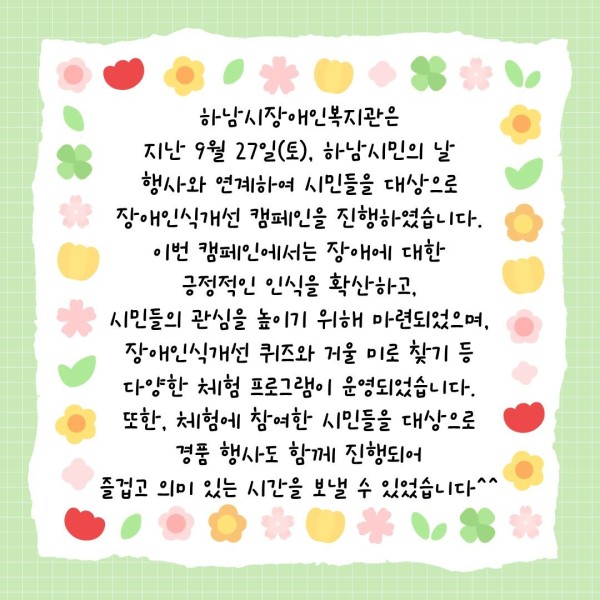 하남시장애인복지관은
지난 9월 27일(토), 하남시민의 날
행사와 연계하여 시민들을 대상으로
장애인식개선 캠페인을 진행하였습니다.
이번 캠페인에서는 장애에 대한
긍정적인 인식을 확산하고,
시민들의 관심을 높이기 위해 마련되었으며,
장애인식개선 퀴즈와 거울 미로 찾기 등
다양한 체험 프로그램이 운영되었습니다.
또한, 체험에 참여한 시민들을 대상으로
경품 행사도 함께 진행되어
즐겁고 의미 있는 시간을 보낼 수 있었습니다^^